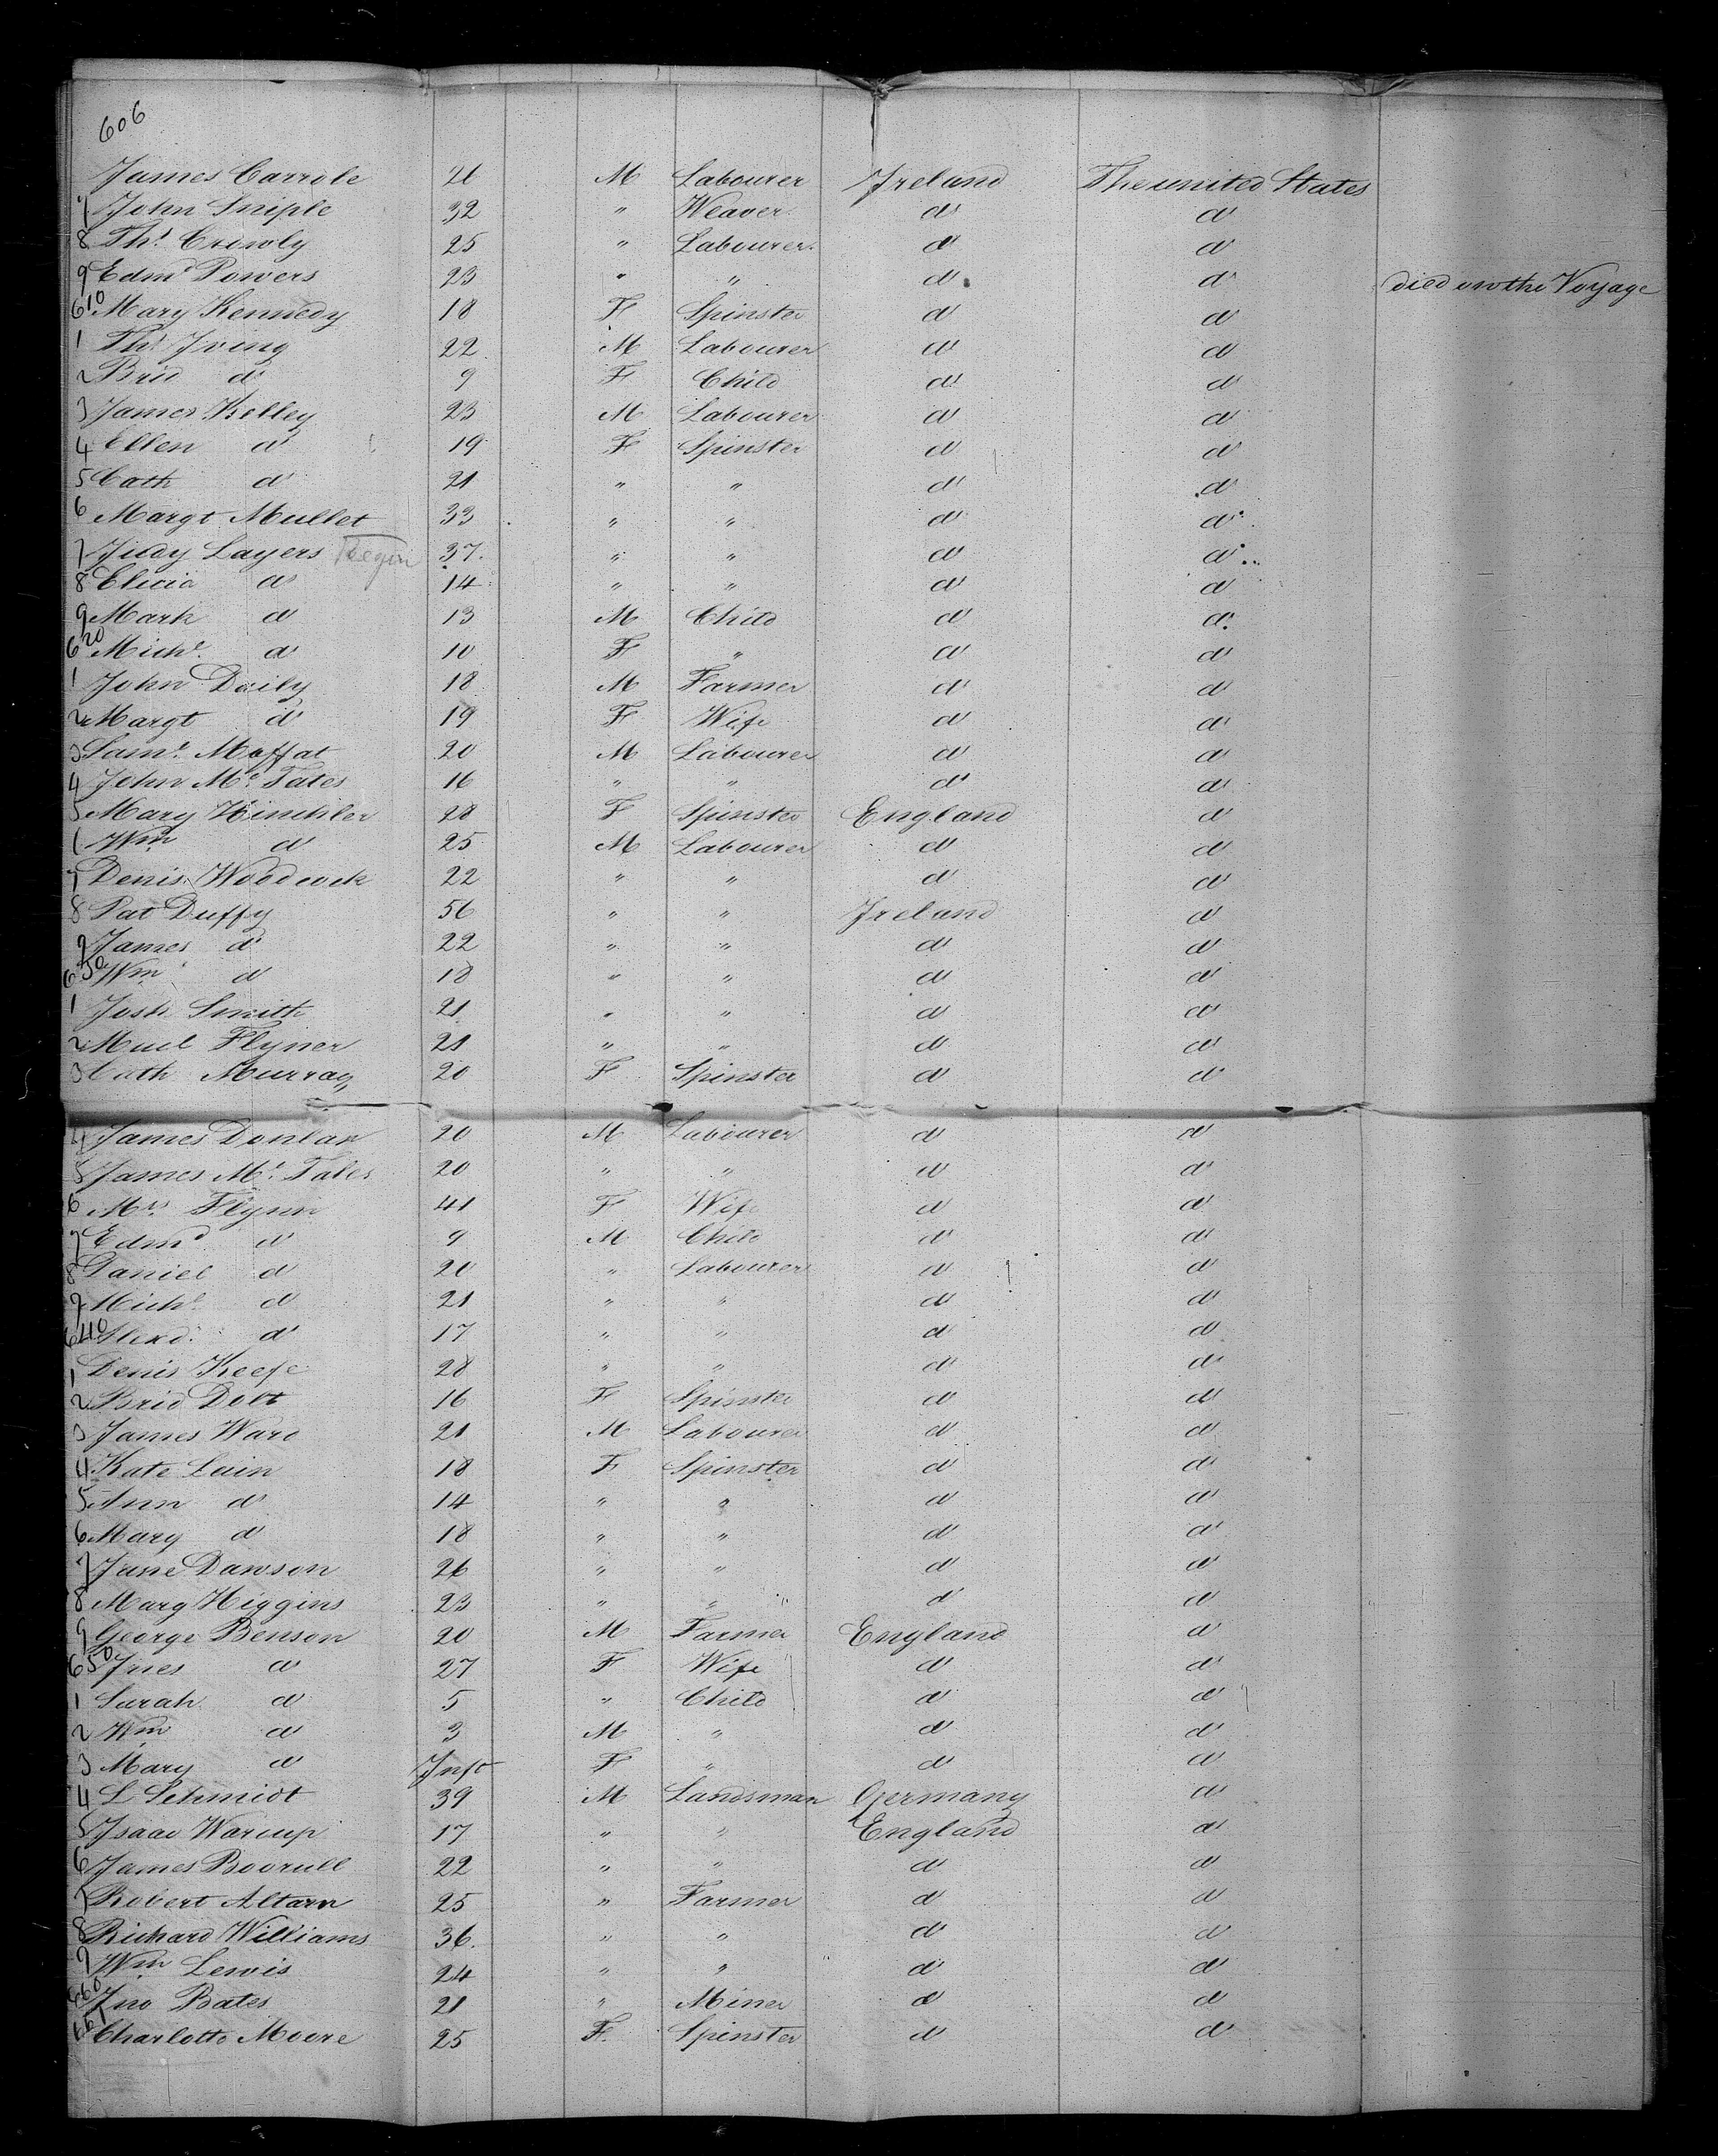 606
James Carrole 26 M Labourer Ireland The united States
7 John Sniple 32 " Weaver d d
8 Ths Crowly 25 " Labourer d d
9 Edmd Powers 23 " " d d died on the Voyage
610 Mary Kennedy 18 F Spinster d d
1 Ths Iving 22 M Labourer d d
2 Brid d 9 F Child d d
3 James Kelley 23 M Labourer d d
4 Ellen d 19 F Spinster d d
5 Cath d 21 " " d d
6 Margt Mullet 33 " " d d
7 Judy Layers 37 " " d d
8 Elicia d 14 " " d d
9 Mark d 13 M Child d d
620 Michl d 10 F " d d
1 John Daily 18 M Farmer d d
2 Margt d 19 F Wife d d
3 Saml Moffat 20 M Labourer d d
4 John Mc Tales 16 " " d d
5 Mary Hinchler 28 F Spinster England d
6 Wm d 25 M Labourer d d
7 Denis Woodcock 22 " " d d
8 Pat Duffy 56 " " Ireland d
9 James d 22 " " d d
630 Wm d 18 " " d d
1 Josh Smith 21 " " d d
2 Flyner 21 " " d d
3 Cath Murray 20 F Spinster d d
4 James Donlan 20 M Labourer d d
5 James Mc Tales 20 " " d d
6 Mrs Flynn 41 F Wife d d
7 Edmd d 9 M Child d d
8 Daniel d 20 " Labourer d d
9 Michl d 21 " " d d
640 d 17 " " d d
1 Denis Keefe 28 " " d d
2 Brid Dolt 16 F Spinster d d
3 James Ward 21 M Labourer d d
4 Kate Lain 18 F Spinster d d
5 Ann d 14 " " d d
6 Mary d 18 " " d d
7 Jane Dawson 26 " " d d
8 Marg Higgins 23 " " d d
9 George Benson 20 M Farmer England d
650 d 27 F Wife d d
1 Sarah d 5 " Child d d
2 Wm d 3 M " d d
3 Mary d Inft F " d d
4 L Schmidt 39 M Landsman Germany d
5 Isaac Warcup 17 " " England d
6 James Boorull 22 " " d d
7 Robert Altarn 25 " Farmer d d
8 Richard Williams 36 " " d d
9 Wm Lewis 24 " " d d
660 Jno Bates 21 " Miner d d
661 Charlotte Moore 25 F Spinster d d